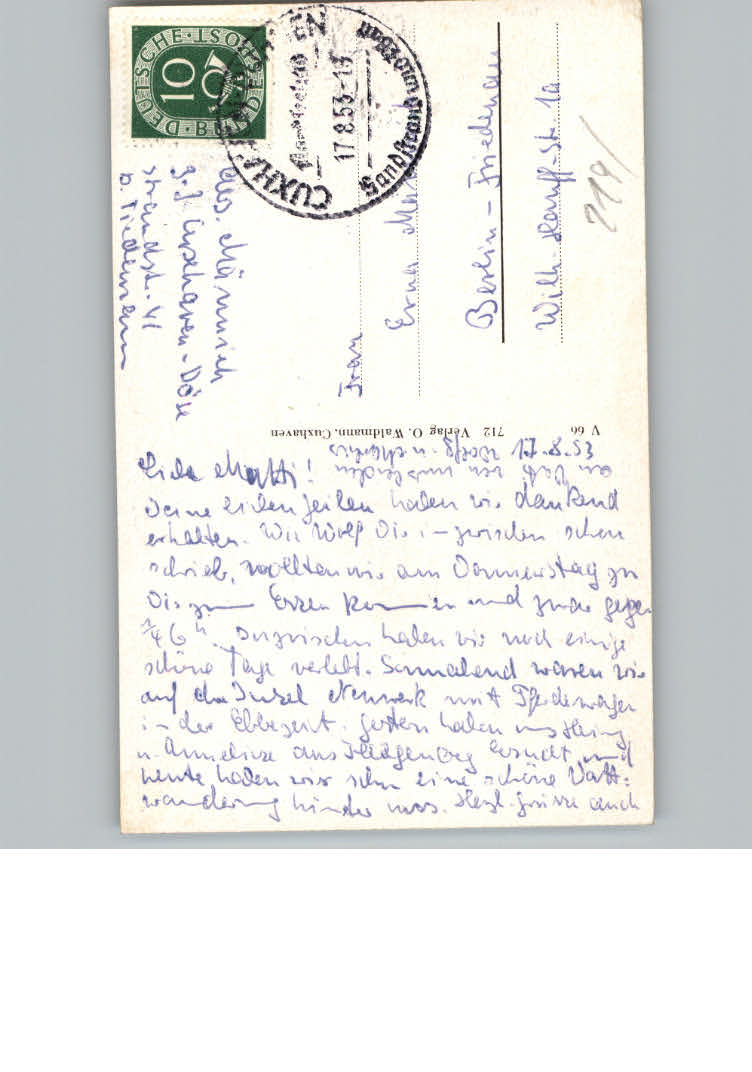 DEUTSCHE BUNDESPOST
10
CUXHAVEN
17.8.53-13
Sandstrand
Abs. Männich
z. Z. Cuxhaven-Döse
Strandst. 41
b. Tiedemann
Frau
Erna
Berlin-Friedenau
Wilh. Hauff-Str. 1a
219/
V 66 712 Verlag O. Waldmann, Cuxhaven
17.8.53
Liebe Mutti!
Deine lieben Zeilen haben wir dankend
erhalten. Wie Wolf Dir inzwischen schon
schrieb, wollten wir am Donnerstag zu
Dir zum Essen kommen und zwar gegen
1/4 6 h. Inzwischen haben wir noch einige
schöne Tage verlebt. Sonnabend waren wir
auf der Insel Neuwerk mit Pferdewagen
in der Ebbezeit. Gestern haben uns Heinz
u. Anneliese aus besucht, und
heute haben wir schon eine schöne Watt-
wanderung hinter uns. Herzl. Grüsse auch
an von uns beiden
Wolfg. u.